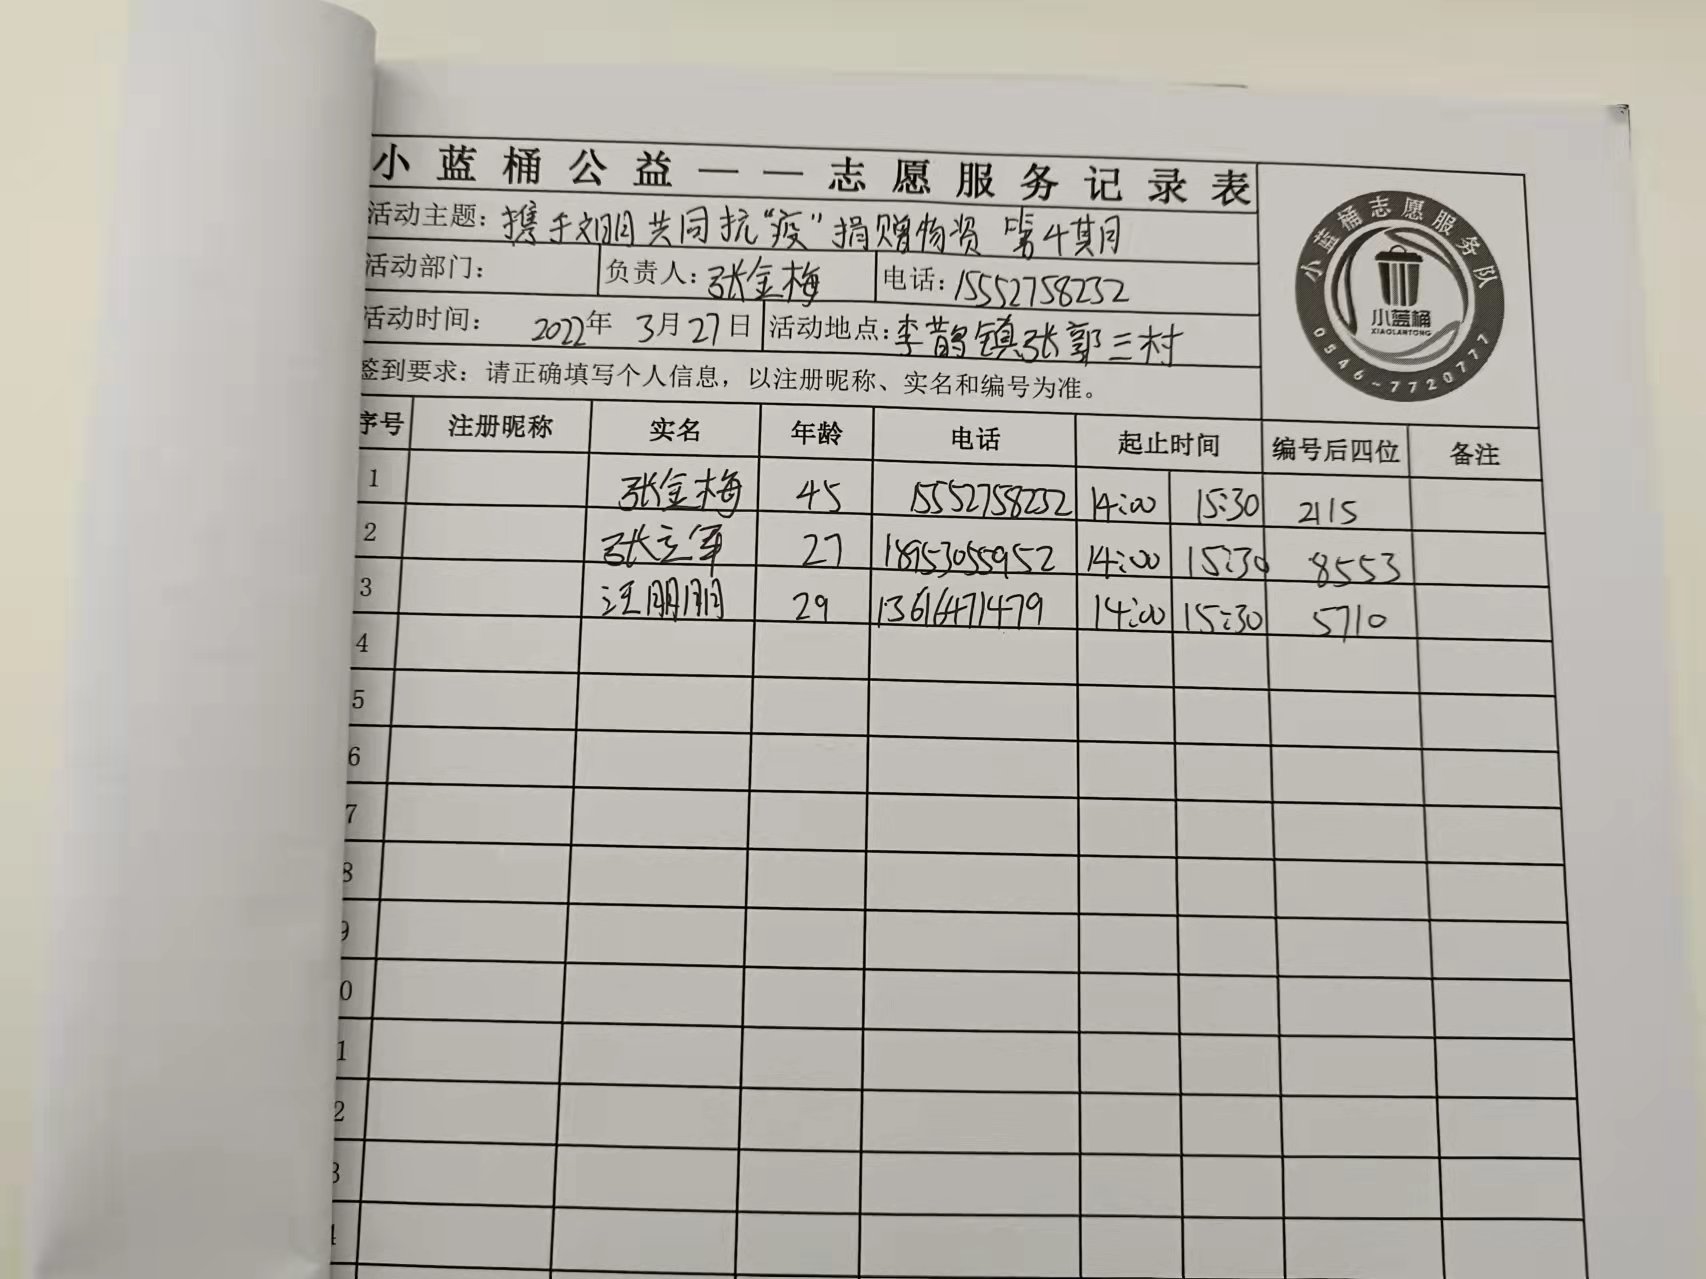 小蓝桶公益——志愿服务记录表
活动主题：携手文明 共同抗“疫”捐赠物资 第4期
活动部门： 负责人：张金梅 电话：15552758232
活动时间： 2022年 3月27日 活动地点：李鹊镇张郭三村
签到要求：请正确填写个人信息，以注册昵称、实名和编号为准。
小蓝桶志愿服务队
小蓝桶
XIAOLANTONG
0546-7720777
序号 注册昵称 实名 年龄 电话 起止时间 编号后四位 备注
1 张金梅 45 15552758232 14:00 15:30 2115
2 张立军 27 18953055952 14:00 15:30 8553
3 汪朋朋 29 13616471479 14:00 15:30 5710
4
5
6
7
8
9
0
1
2
3
4